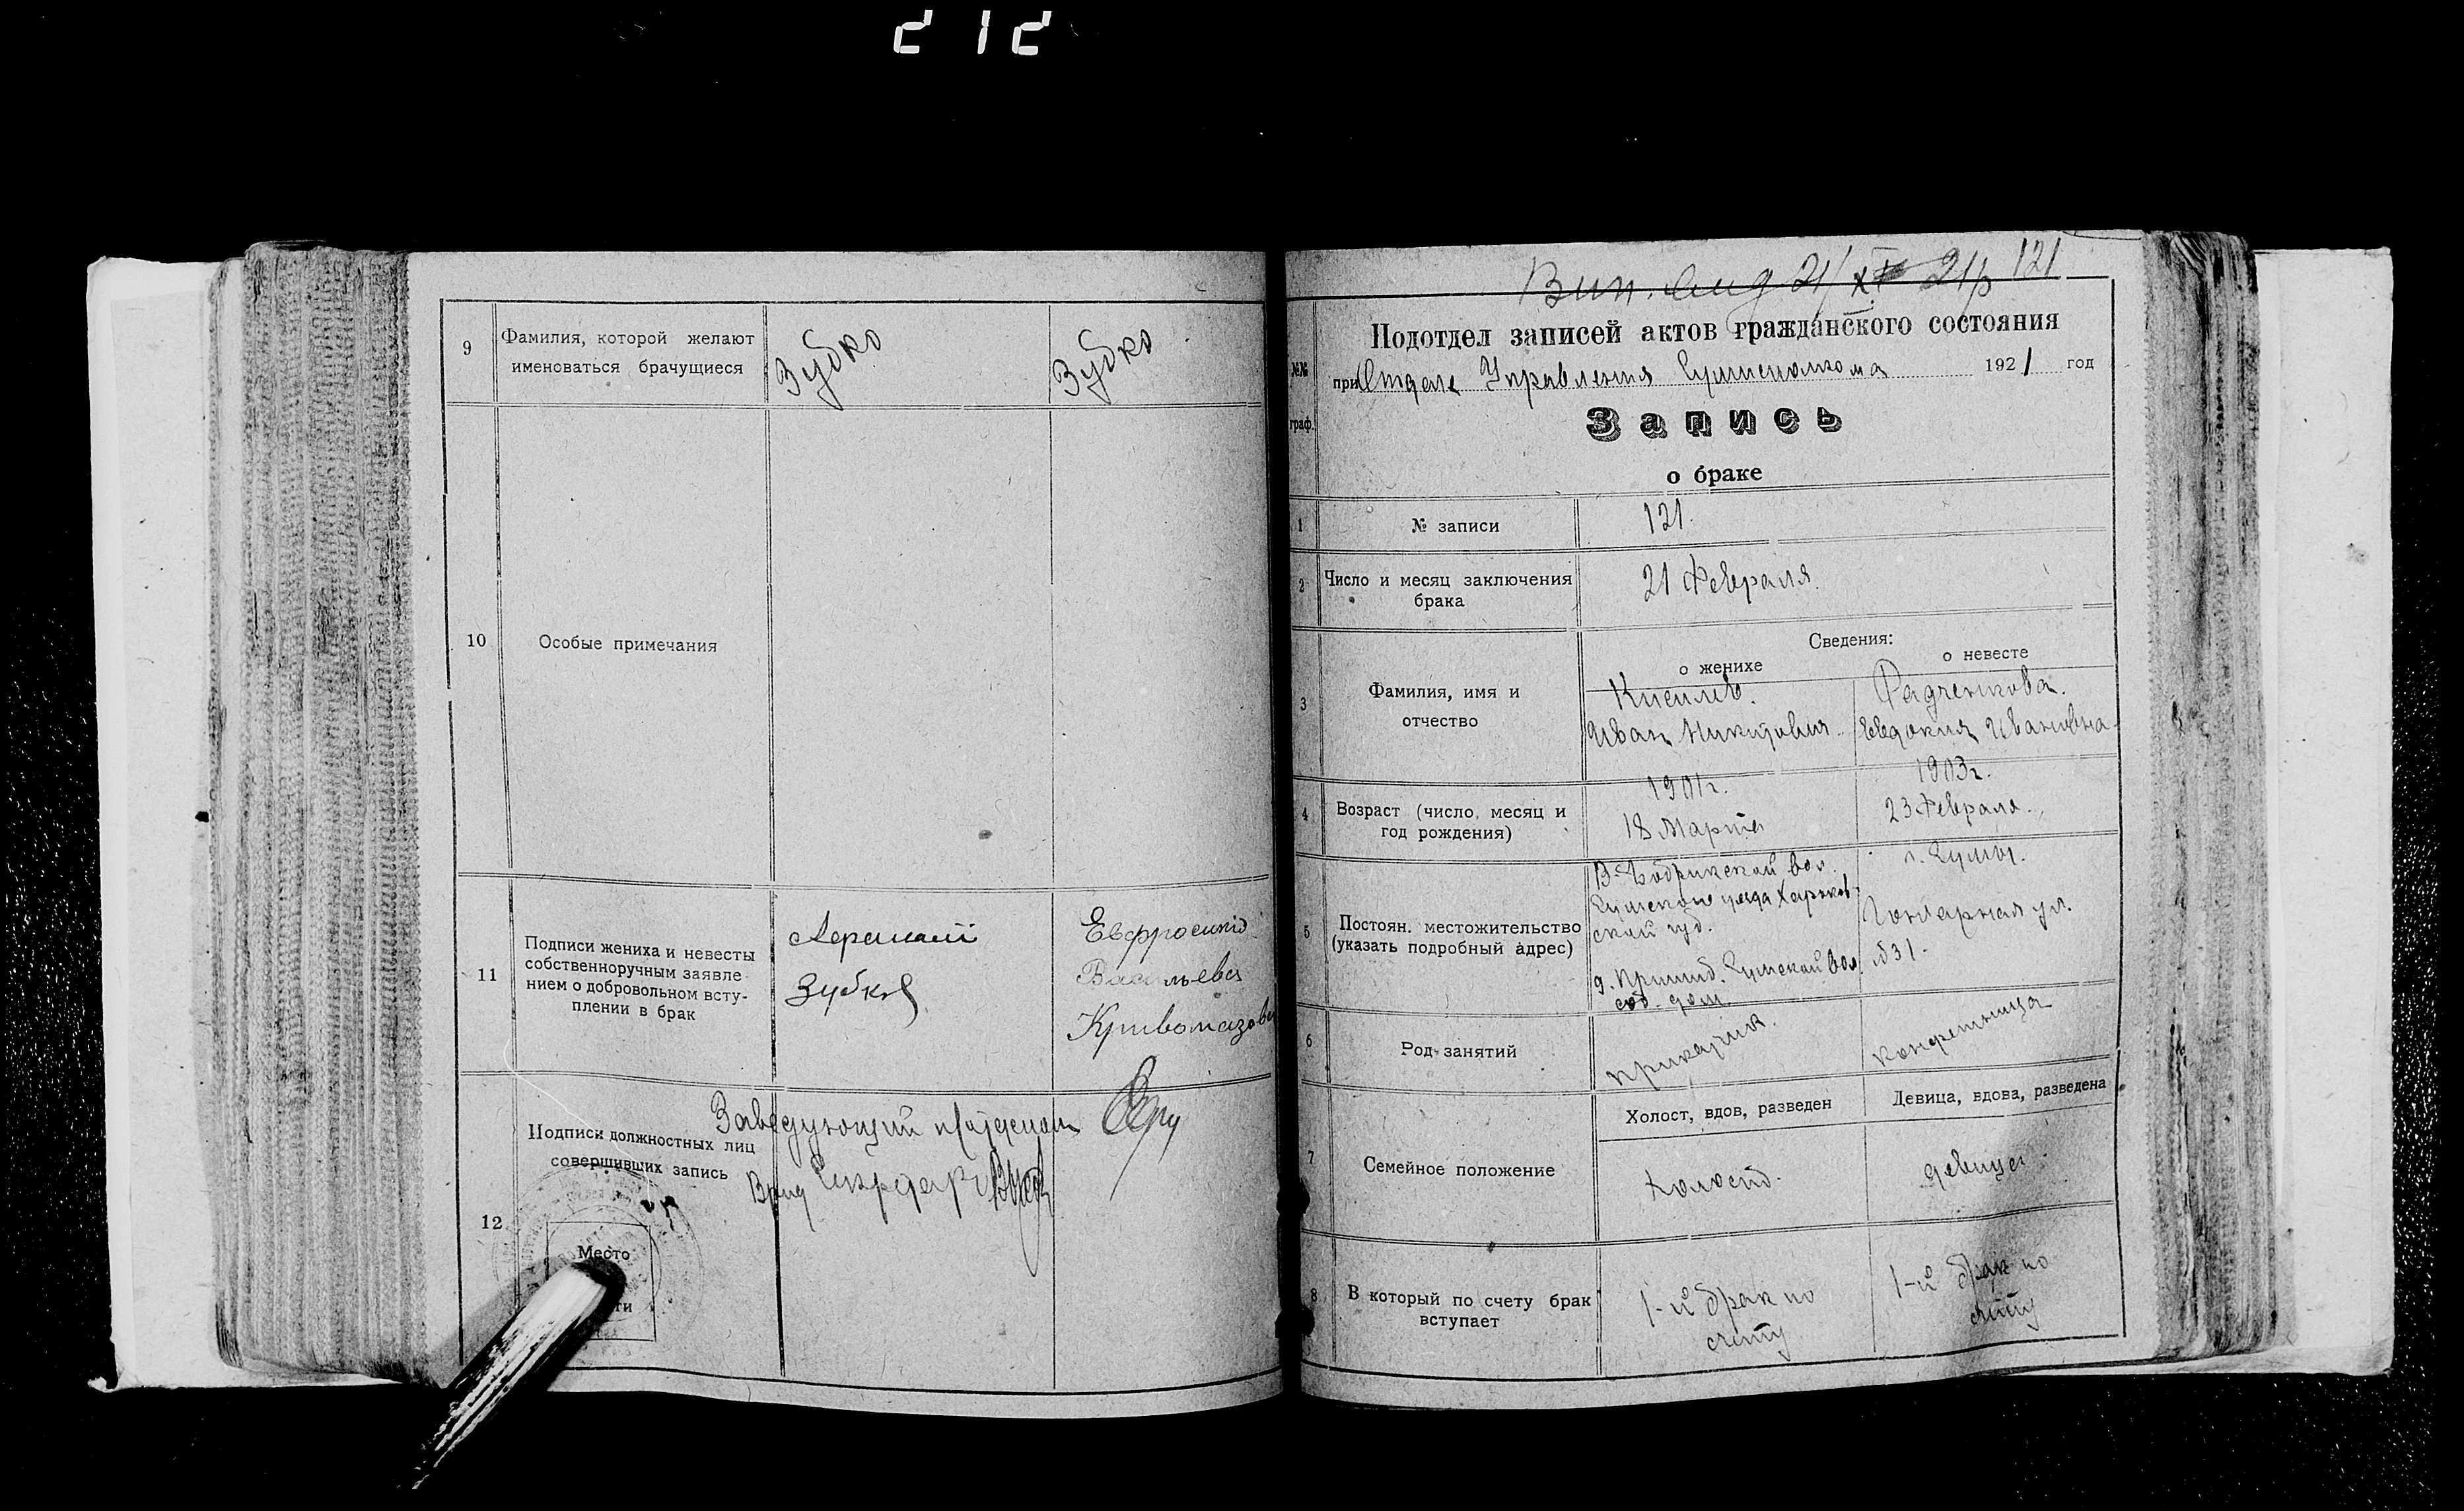 212
9
Фамилия, которой желают
именоваться брачущиеся
Зубко
Зубко
10
Особые примечания
11
Подписи жениха и невесты
собственноручным заявле-
нием о добровольном всту-
плении в брак
Зубков
Евфросинiя
Васильева
Кривомазова
12
Подписи должностных лиц
совершивших запись
Заведующий
Врид
Место
121
№№
граф.
Подотдел записей актов гражданского состояния
при Отделе Управления Сумисполкома 1921 год
Запись
о браке
1
№ записи
121.
2
Число и месяц заключения
брака
21 Февраля.
Сведения:
о женихе
о невесте
3
Фамилия, имя и
отчество
Киселев.
Иван Никитович.
Радченкова.
Евдокия Ивановна.
4
Возраст (число, месяц и
год рождения)
1901 г.
18 Марта
1903 г.
23 Февраля.
5
Постоян. местожительство
(указать подробный адрес)
В-Бобрикской вол.
Сумского уезда Харьков-
ской губ.
Сумской вол.
соб. дом.
г. Сумы.
Гончарная ул.
№ 31.
6
Род занятий
приказчик.
конфетница
7
Семейное положение
Холост, вдов, разведен
Девица, вдова, разведена
холост.
девица.
8
В который по счету брак
вступает
1-й брак по
счету
1-й брак по
счету